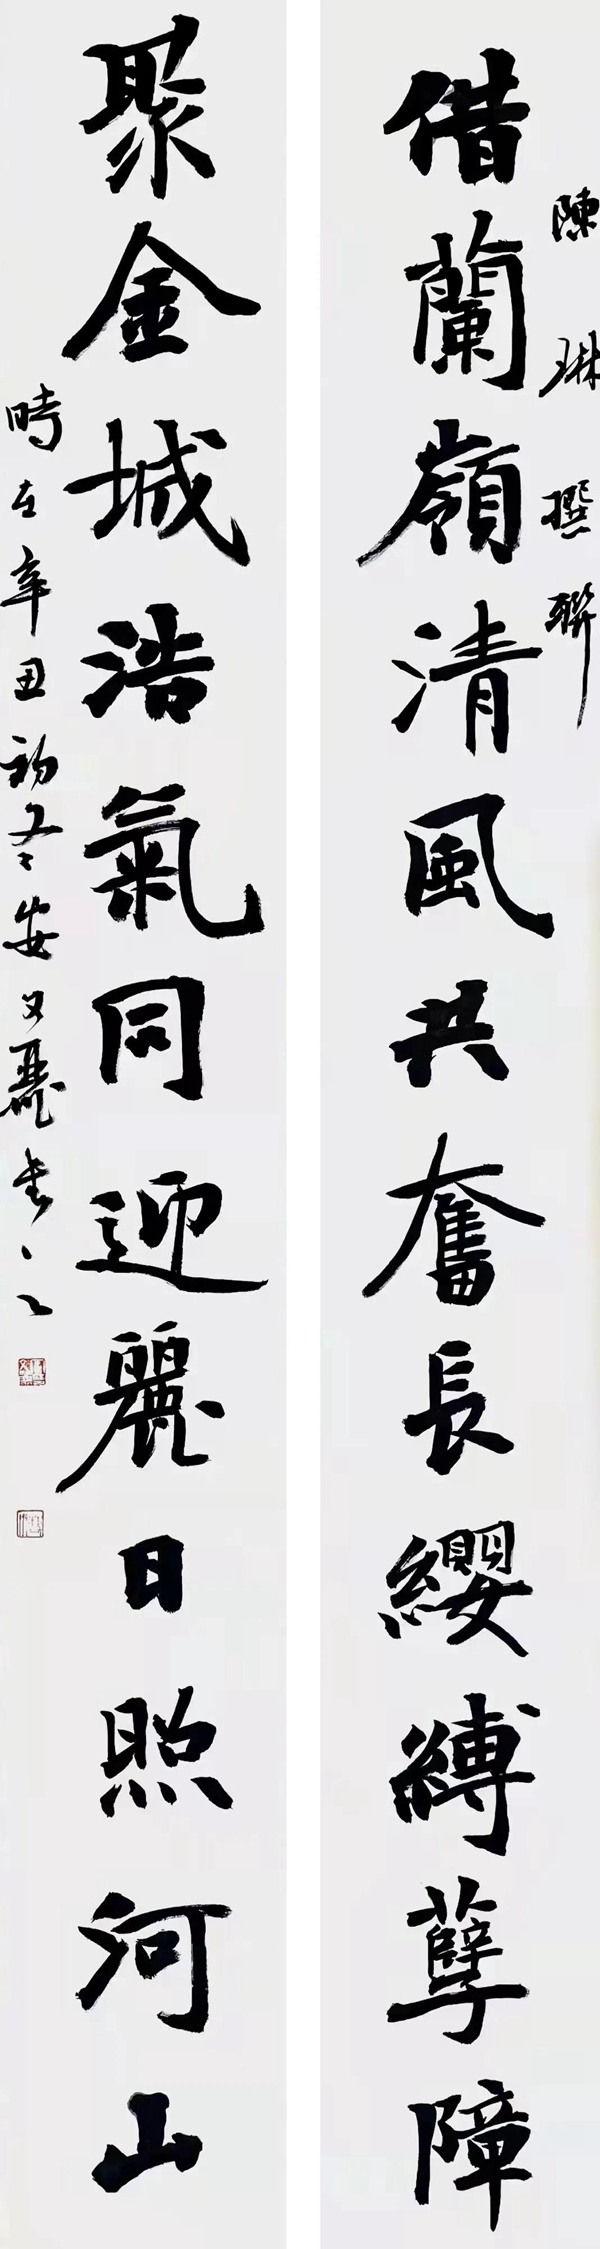 陳琳撰聯
借蘭嶺清風共奮長纓縛孽障
聚金城浩氣同迎麗日照河山
時在辛丑初冬安文麗書